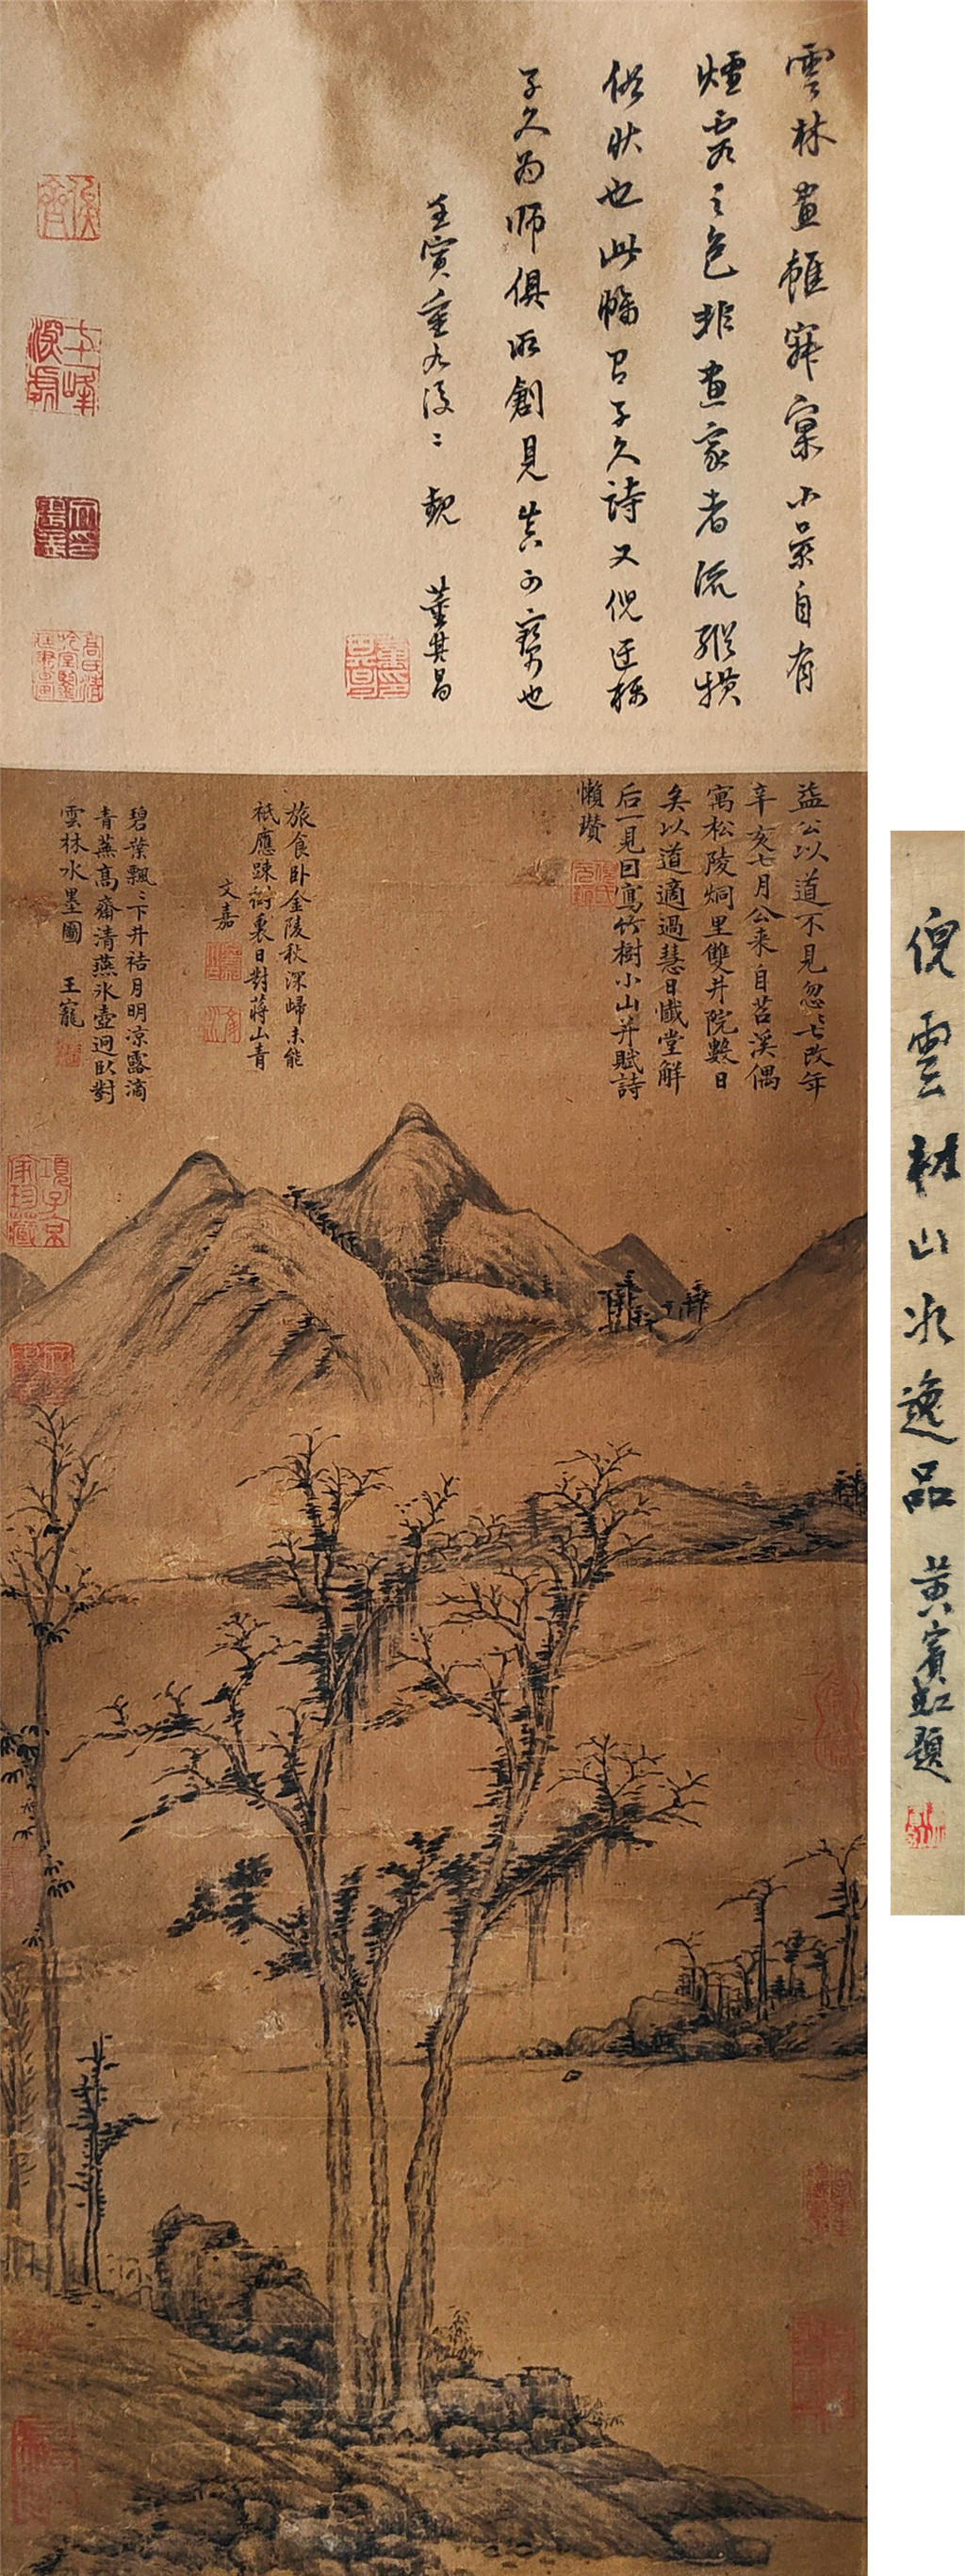 雲林畫雖寂寞小景自有
煙霞之色非畫家者流縱横
俗狀也此幅有子久詩又倪迂極
子久為師俱所創見真可寳也
壬寅重九後二觀 董其昌
益公以道不見忽忽七改年
辛亥七月公来自苕溪偶
寓松陵炯里雙井院數日
矣以道適過慧日懺堂解
后一見因寫竹樹小山并賦詩
懶瓚
旅食卧金陵秋深歸未能
祇應踈衕裏日對蔣山青
文嘉
碧葉飄飄下井祜月明凉露滴
青蕪高齋清燕氷壺迥臥對
雲林水墨圖 王寵
倪雲林山水逸品 黄賓虹題